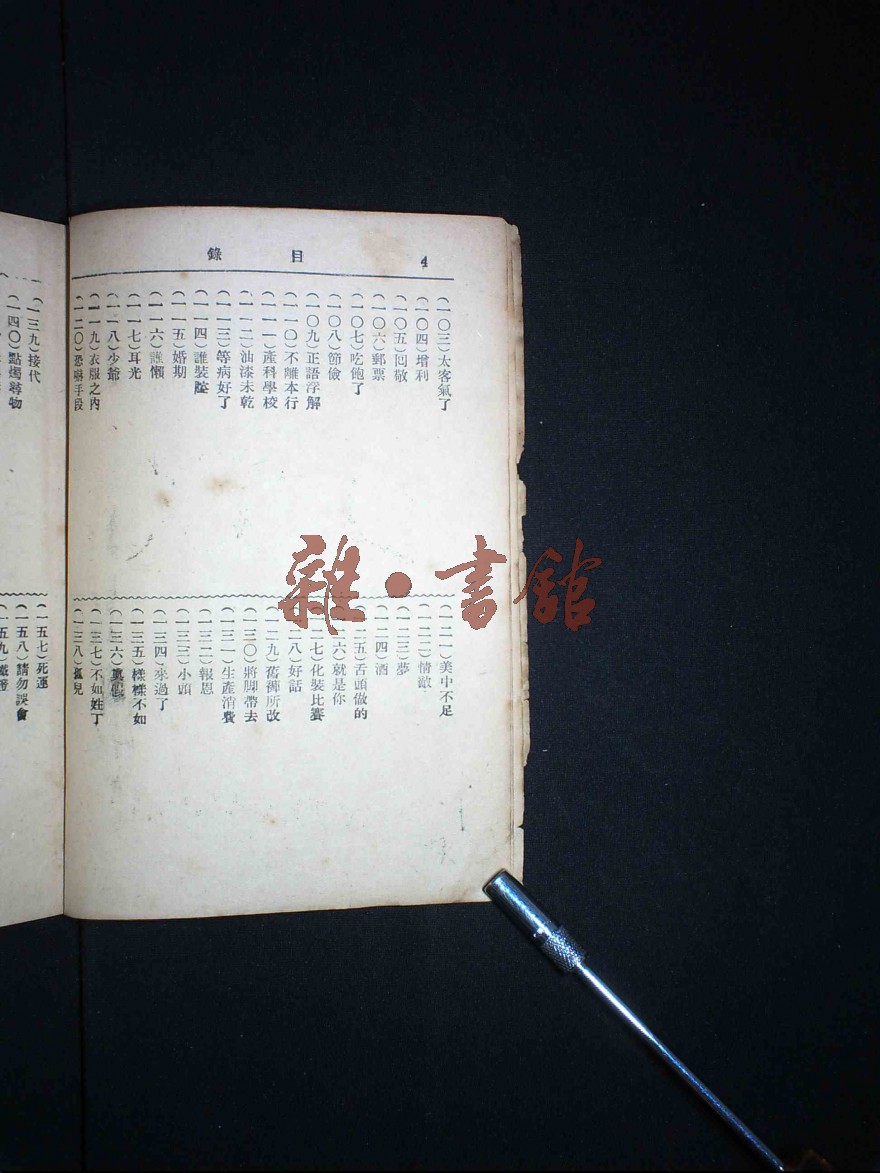 目錄 4
(一〇三)太客氣了
(一〇四)增利
(一〇五)囘敬
(一〇六)郵票
(一〇七)吃飽了
(一〇八)節儉
(一〇九)正語浮解
(一一〇)不離本行
(一一一)產科學校
(一一二)油漆未乾
(一一三)等病好了
(一一四)誰裝
(一一五)婚期
(一一六)懶
(一一七)耳光
(一一八)少爺
(一一九)衣服之內
(一二〇)恐嚇手段
(一二一)美中不足
(一二二)情敵
(一二三)夢
(一二四)酒
二五)舌頭做的
二六)就是你
二七)化裝比賽
二八)好話
(一二九)舊褲所改
(一三〇)將脚帶去
(一三一)生產消費
(一三二)報恩
(一三三)小頭
(一三四)來過了
(一三五)樣樣不如
(一三六)
(一三七)不如姓丁
(一三八)孤兒
(一三九)接代
(一四〇)點燭尋物
(一五七)死運
(一五八)請勿誤會
(一五九)
雜·書館